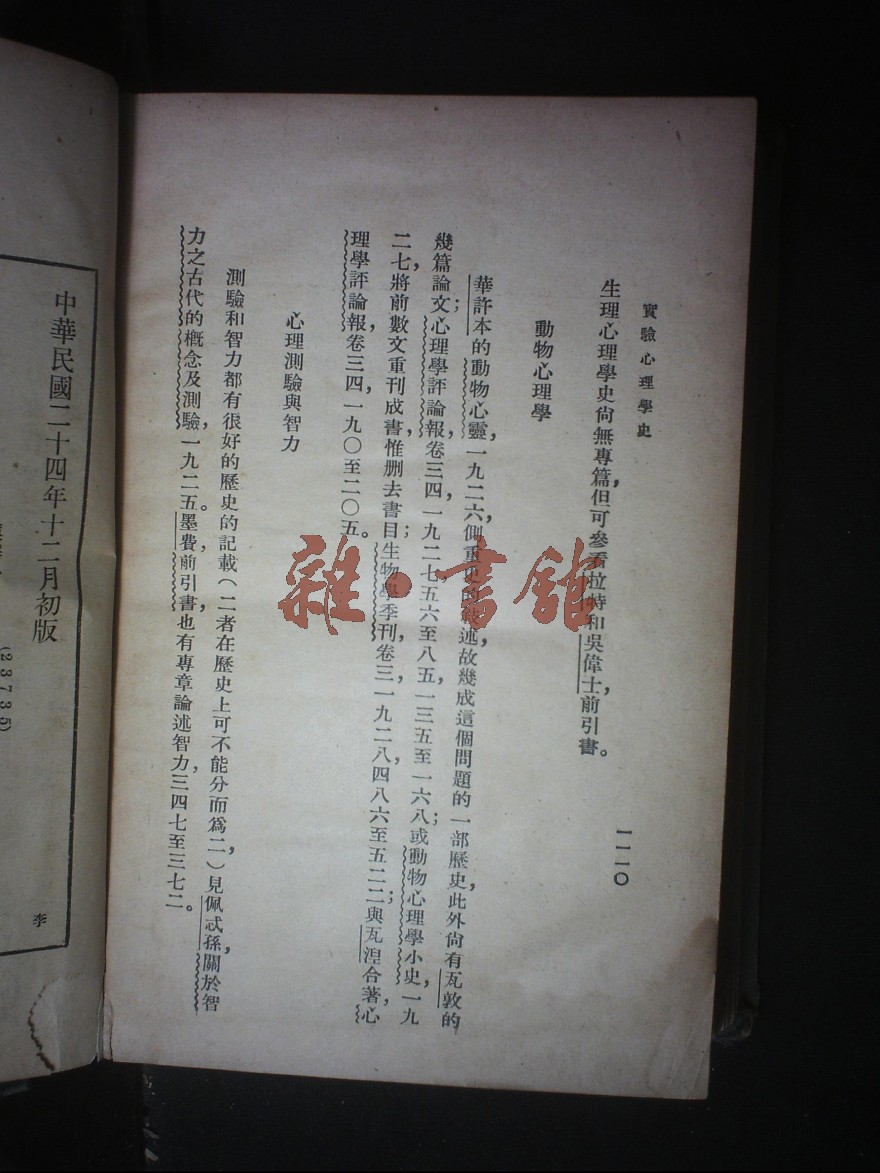 實驗心理學史
一一一〇
生理心理學史尙無專篇，但可參看拉特和吳偉士，前引書。
動物心理學
華許本的動物心靈，一九二六，側重史的敍述，故幾成這個問題的一部歷史，此外尙有瓦敦的
幾篇論文；心理學評論報，卷三四，一九二七，五六至八五，一三五至一六八；或動物心理學小史，一九
二七，將前數文重刊成書，惟删去書目；生物學季刊，卷三，一九二八，四八六至五二二；與瓦涅合著，心
理學評論報，卷三四，一九〇至二〇五。
心理測驗與智力
測驗和智力都有很好的歷史的記載（二者在歷史上可不能分而爲二，）見佩忒孫，關於智
力之古代的槪念及測驗，一九二五。墨費，前引書，也有專章論述智力，三四七至三七二。
中華民國二十四年十二月初版
(23735)
李
雜·書館